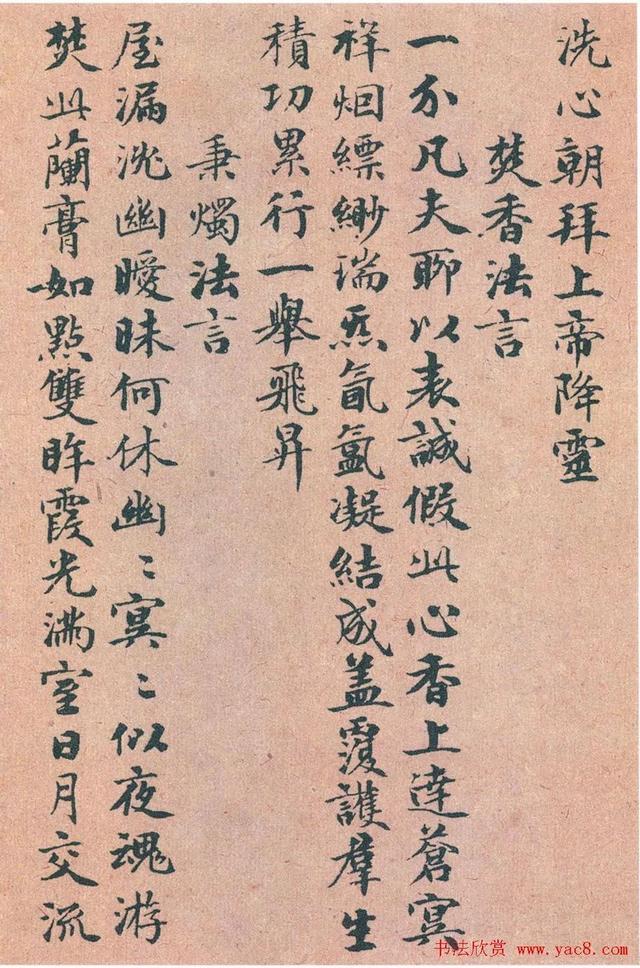 洗心朝拜上帝降靈
焚香法言
一介凡夫聊以表誠假此心香上達蒼冥
祥烟縹緲瑞炁氤氳凝結成蓋覆護羣生
積功累行一舉飛昇
秉燭法言
屋漏洮幽曖昧何休幽〻冥〻似夜魂游
焚此蘭膏如點雙眸霞光滿室日月交流
书法欣赏 www.yac8.com